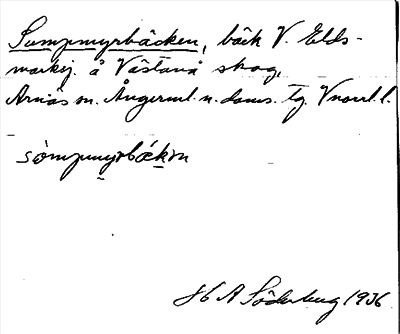 Sumpmyrbäcken, bäck V. Elds-
markej. å Västanå skog,
Arnäs sn. Ångerml. n. doms. tg. Vnorrl. l.
sòmpmyrbǽkm
H A Söderberg 1936